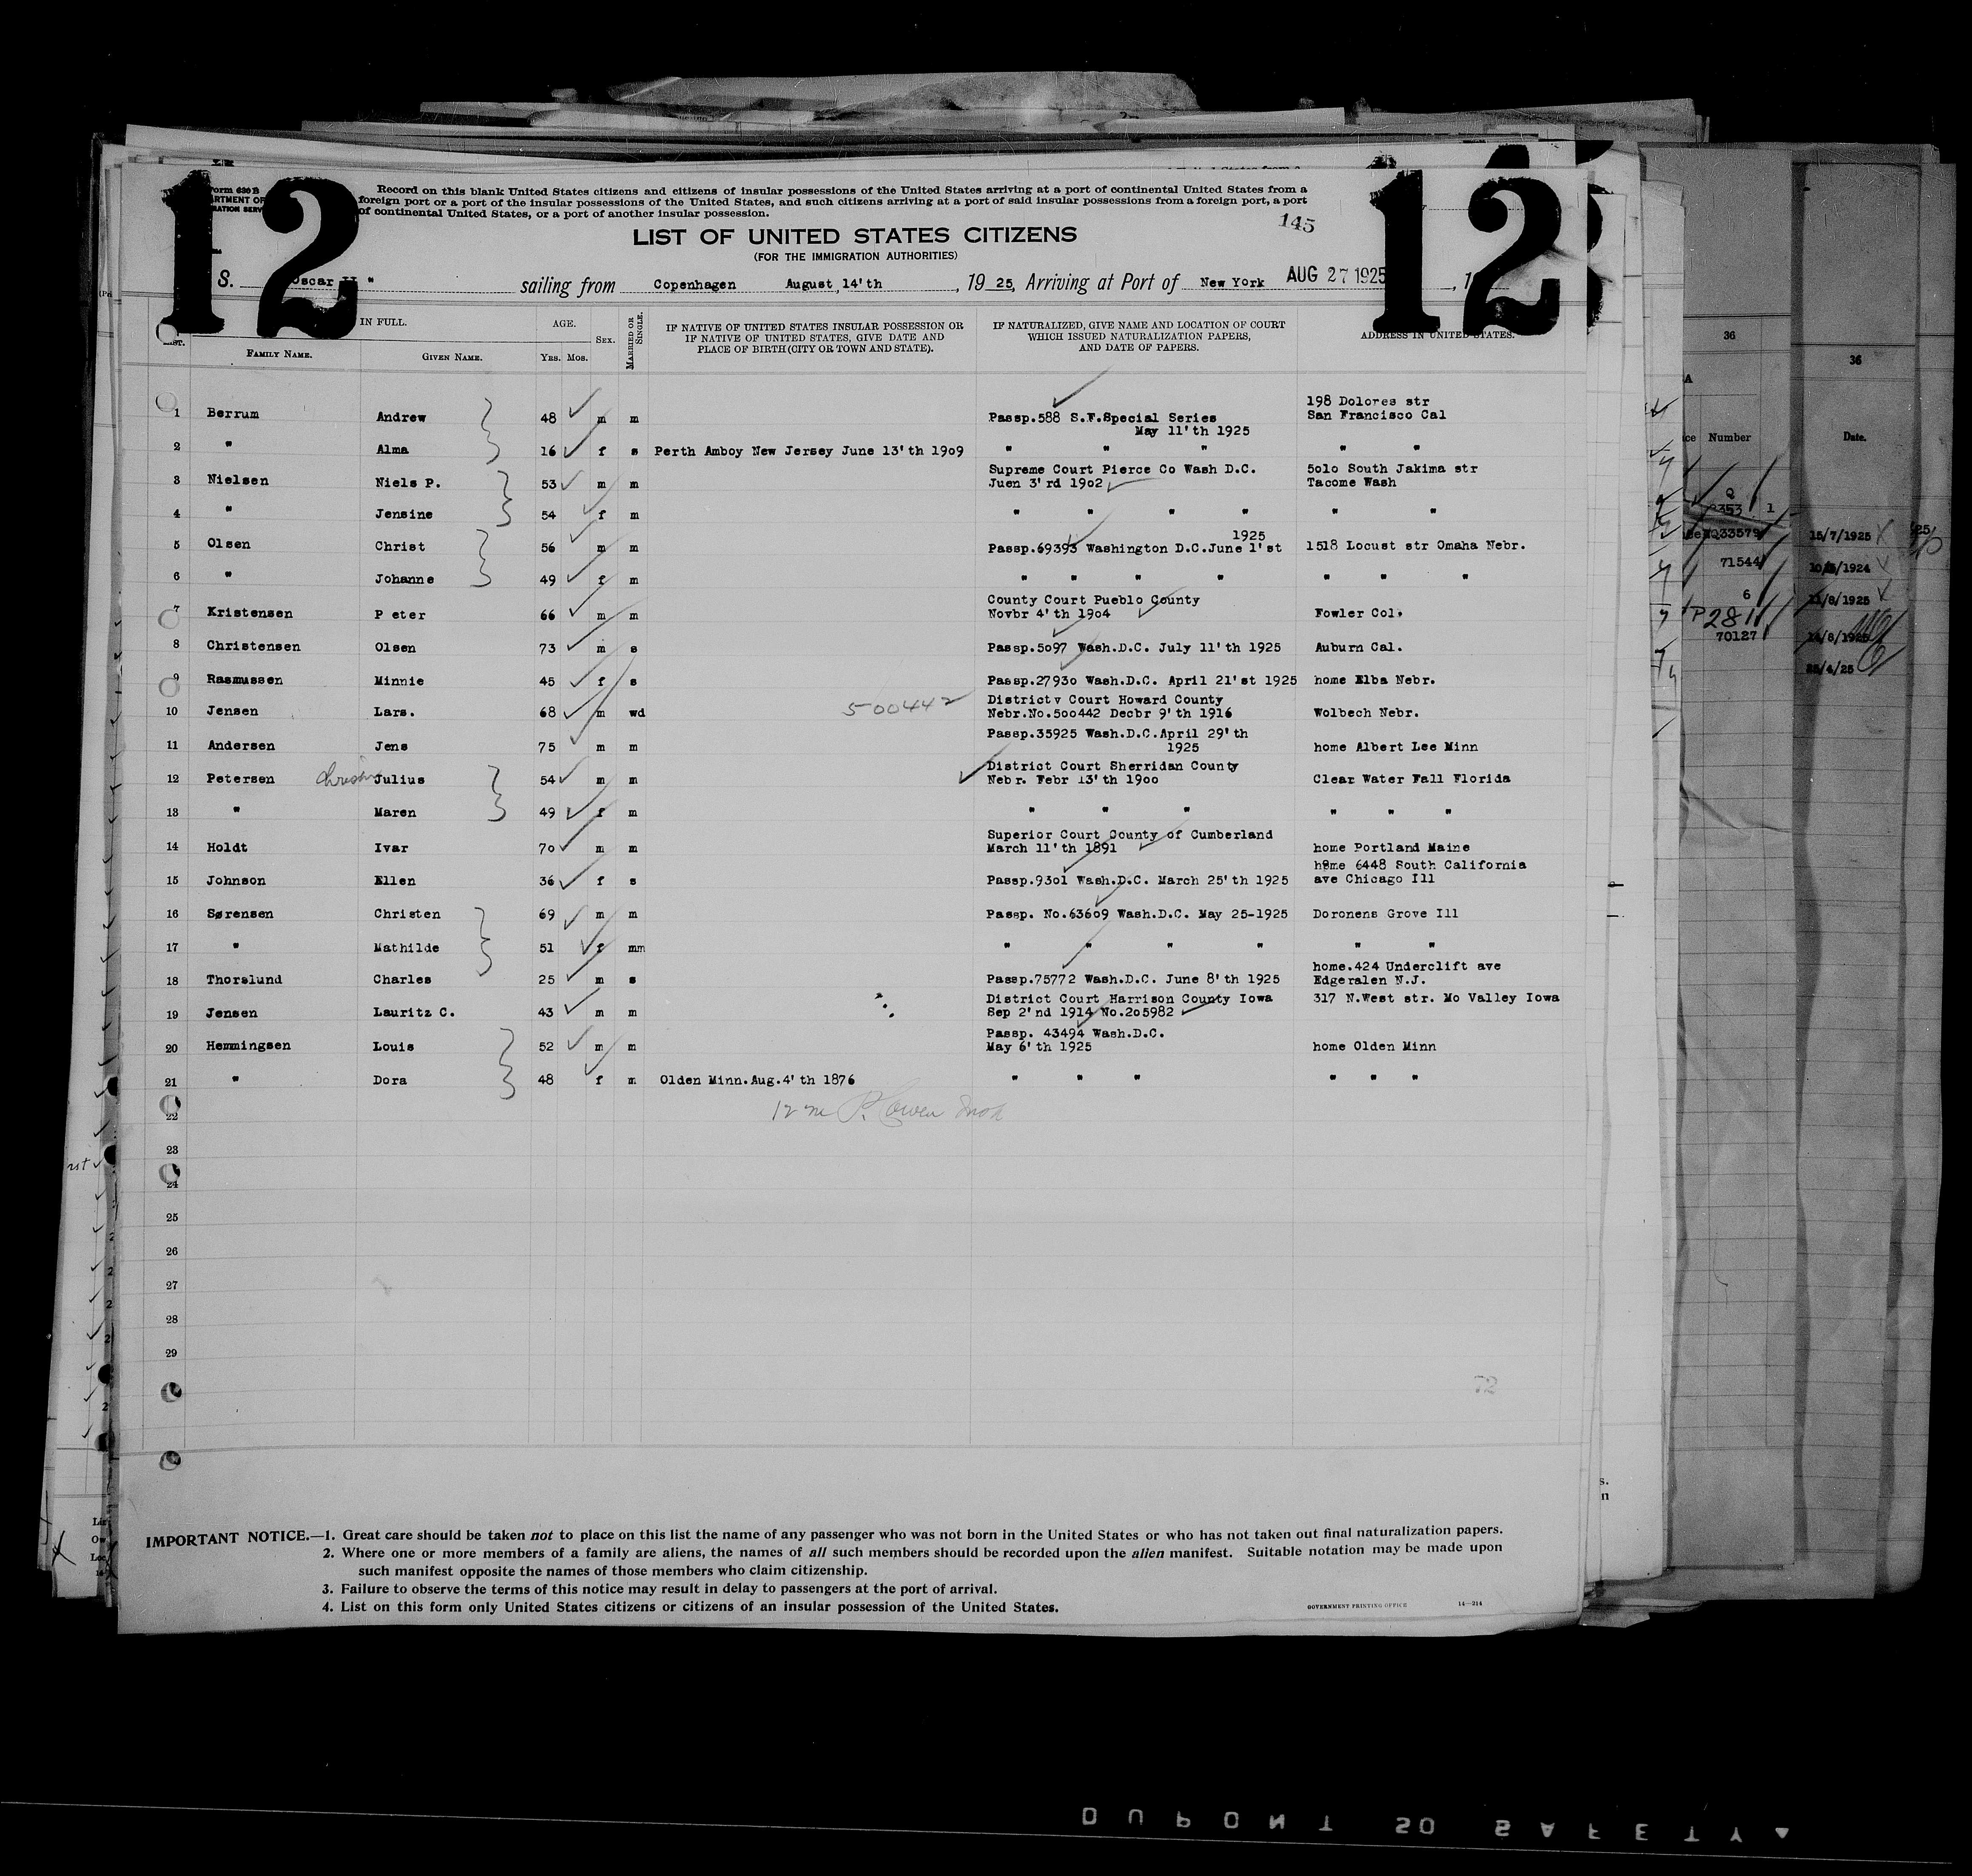 12
12
Form 630 B
Record on this blank United States citizens and citizens of insular possessions of the United States arriving at a port of continental United States from a
foreign port or a port of the insular possessions of the United States, and such citizens arriving at a port of said insular possessions from a foreign port, a port
of continental United States, or a port of another insular possession.
145
LIST OF UNITED STATES CITIZENS
(FOR THE IMMIGRATION AUTHORITIES)
S. Oscar II " sailing from Copenhagen August, 14'th, 19 25, Arriving at Port of New York AUG 27 1925, 1
IN FULL. AGE. SEX. MARRIED OR SINGLE. IF NATIVE OF UNITED STATES INSULAR POSSESSION OR IF NATIVE OF UNITED STATES, GIVE DATE AND PLACE OF BIRTH (CITY OR TOWN AND STATE). IF NATURALIZED, GIVE NAME AND LOCATION OF COURT WHICH ISSUED NATURALIZATION PAPERS, AND DATE OF PAPERS. ADDRESS IN UNITED STATES.
FAMILY NAME. GIVEN NAME. YRS. MOS.
198 Dolores str
1 Berrum Andrew 48 m m Passp.588 S.F.Special Series San Francisco Cal
May 11'th 1925
2 " Alma 16 f s Perth Amboy New Jersey June 13'th 19o9 " " " " "
Supreme Court Pierce Co Wash D.C. 5o1o South Jakima str
3 Nielsen Niels P. 53 m m Juen 3'rd 19o2 Tacome Wash
4 " Jensine 54 f m " " " " " "
1925
5 Olsen Christ 56 m m Passp.69393 Washington D.C.June 1'st 1518 Locust str Omaha Nebr.
6 " Johanne 49 f m " " " " " " "
County Court Pueblo County
7 Kristensen P eter 66 m m Novbr 4'th 19o4 Fowler Col.
8 Christensen Olsen 73 m s Passp.5o97 Wash.D.C. July 11'th 1925 Auburn Cal.
9 Rasmussen Minnie 45 f s Passp.2793o Wash.D.C. April 21'st 1925 home Elba Nebr.
500442 Districtv Court Howard County
10 Jensen Lars. 68 m wd Nebr.No.5oo442 Decbr 9'th 1916 Wolbech Nebr.
Passp.35925 Wash.D.C.April 29'th
11 Andersen Jens 75 m m 1925 home Albert Lee Minn
District Court Sherridan County
12 Petersen Julius 54 m m Nebr. Febr 13'th 19oo Clear Water Fall Florida
13 " Maren 49 f m " " " " " "
Superior Court County of Cumberland
14 Holdt Ivar 7o m m March 11'th 1891 home Portland Maine
home 6448 South California
15 Johnson Ellen 36 f s Passp.93o1 Wash.D.C. March 25'th 1925 ave Chicago Ill
16 Sørensen Christen 69 m m Passp. No.636o9 Wash.D.C. May 25-1925 Doronens Grove Ill
17 " Mathilde 51 f mm " " " " " "
home.424 Underclift ave
18 Thorslund Charles 25 m s Passp.75772 Wash.D.C. June 8'th 1925 Edgeralen N.J.
District Court Harrison County Iowa 317 N.West str. Mo Valley Iowa
19 Jensen Lauritz C. 43 m m Sep 2'nd 1914 No.2o5982
Passp. 43494 Wash.D.C.
20 Hemmingsen Louis 52 m m May 6'th 1925 home Olden Minn
21 " Dora 48 f m Olden Minn.Aug.4'th 1876 " " " " " "
22
23
24
25
26
27
28
29
72
IMPORTANT NOTICE.—1. Great care should be taken not to place on this list the name of any passenger who was not born in the United States or who has not taken out final naturalization papers.
2. Where one or more members of a family are aliens, the names of all such members should be recorded upon the alien manifest. Suitable notation may be made upon
such manifest opposite the names of those members who claim citizenship.
3. Failure to observe the terms of this notice may result in delay to passengers at the port of arrival.
4. List on this form only United States citizens or citizens of an insular possession of the United States.
GOVERNMENT PRINTING OFFICE 14—214
36
36
Number
Date.
15/7/1925
71544
6
2811
70127
DUPONT SO SAFETY